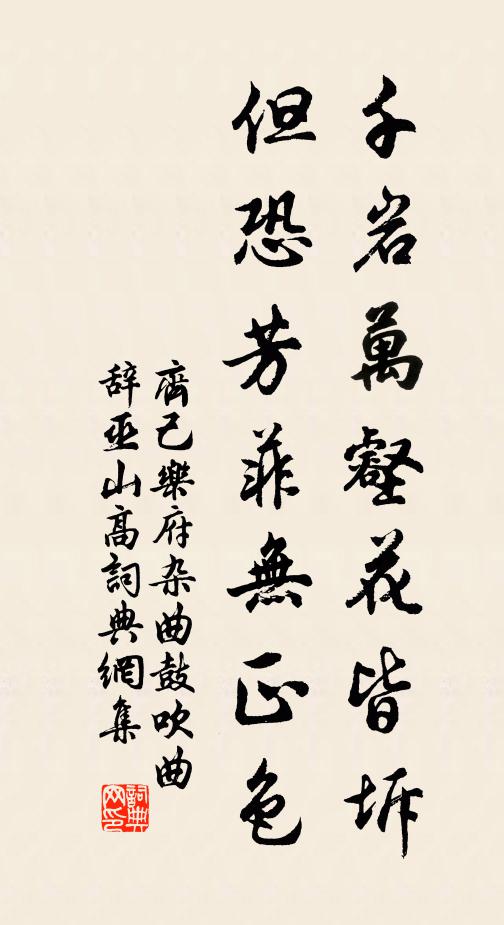 千岩萬壑花皆坼
但恐芳菲無正色
齊己樂府杂曲鼓吹曲
辞巫山高詞典網集
詞典网印